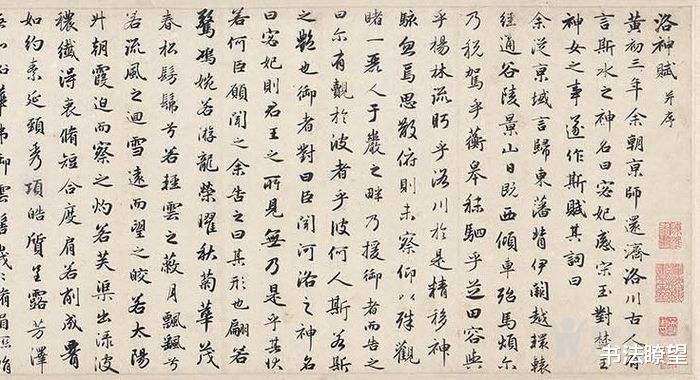 洛神賦 并序
黃初三年余朝京師還濟洛川古人有
言斯水之神名曰宓妃感宋玉對楚王
神女之事遂作斯賦其詞曰
余從京域言歸東藩背伊闕越轘轅
經通谷陵景山日既西傾車殆馬煩尔
乃稅駕乎蘅皋秣駟乎芝田容與
乎楊林流眄乎洛川於是精移神
駭忽焉思散俯則未察仰以殊觀
睹一麗人于巖之畔乃援御者而告之
曰尔有覿於彼者乎彼何人斯若斯
之艷也御者對曰臣聞河洛之神名
曰宓妃則君王之所見無乃是乎其狀
若何臣願聞之余告之曰其形也翩若
驚鴻婉若游龍榮曜秋菊華茂
春松髣髴兮若輕雲之蔽月飄颻兮
若流風之迴雪遠而望之皎若太陽
升朝霞迫而察之灼若芙蕖出淥波
穠纖得衷脩短合度肩若削成腰
如約素延頸秀項皓質呈露芳澤
華弗御雲髻
书法瞭望